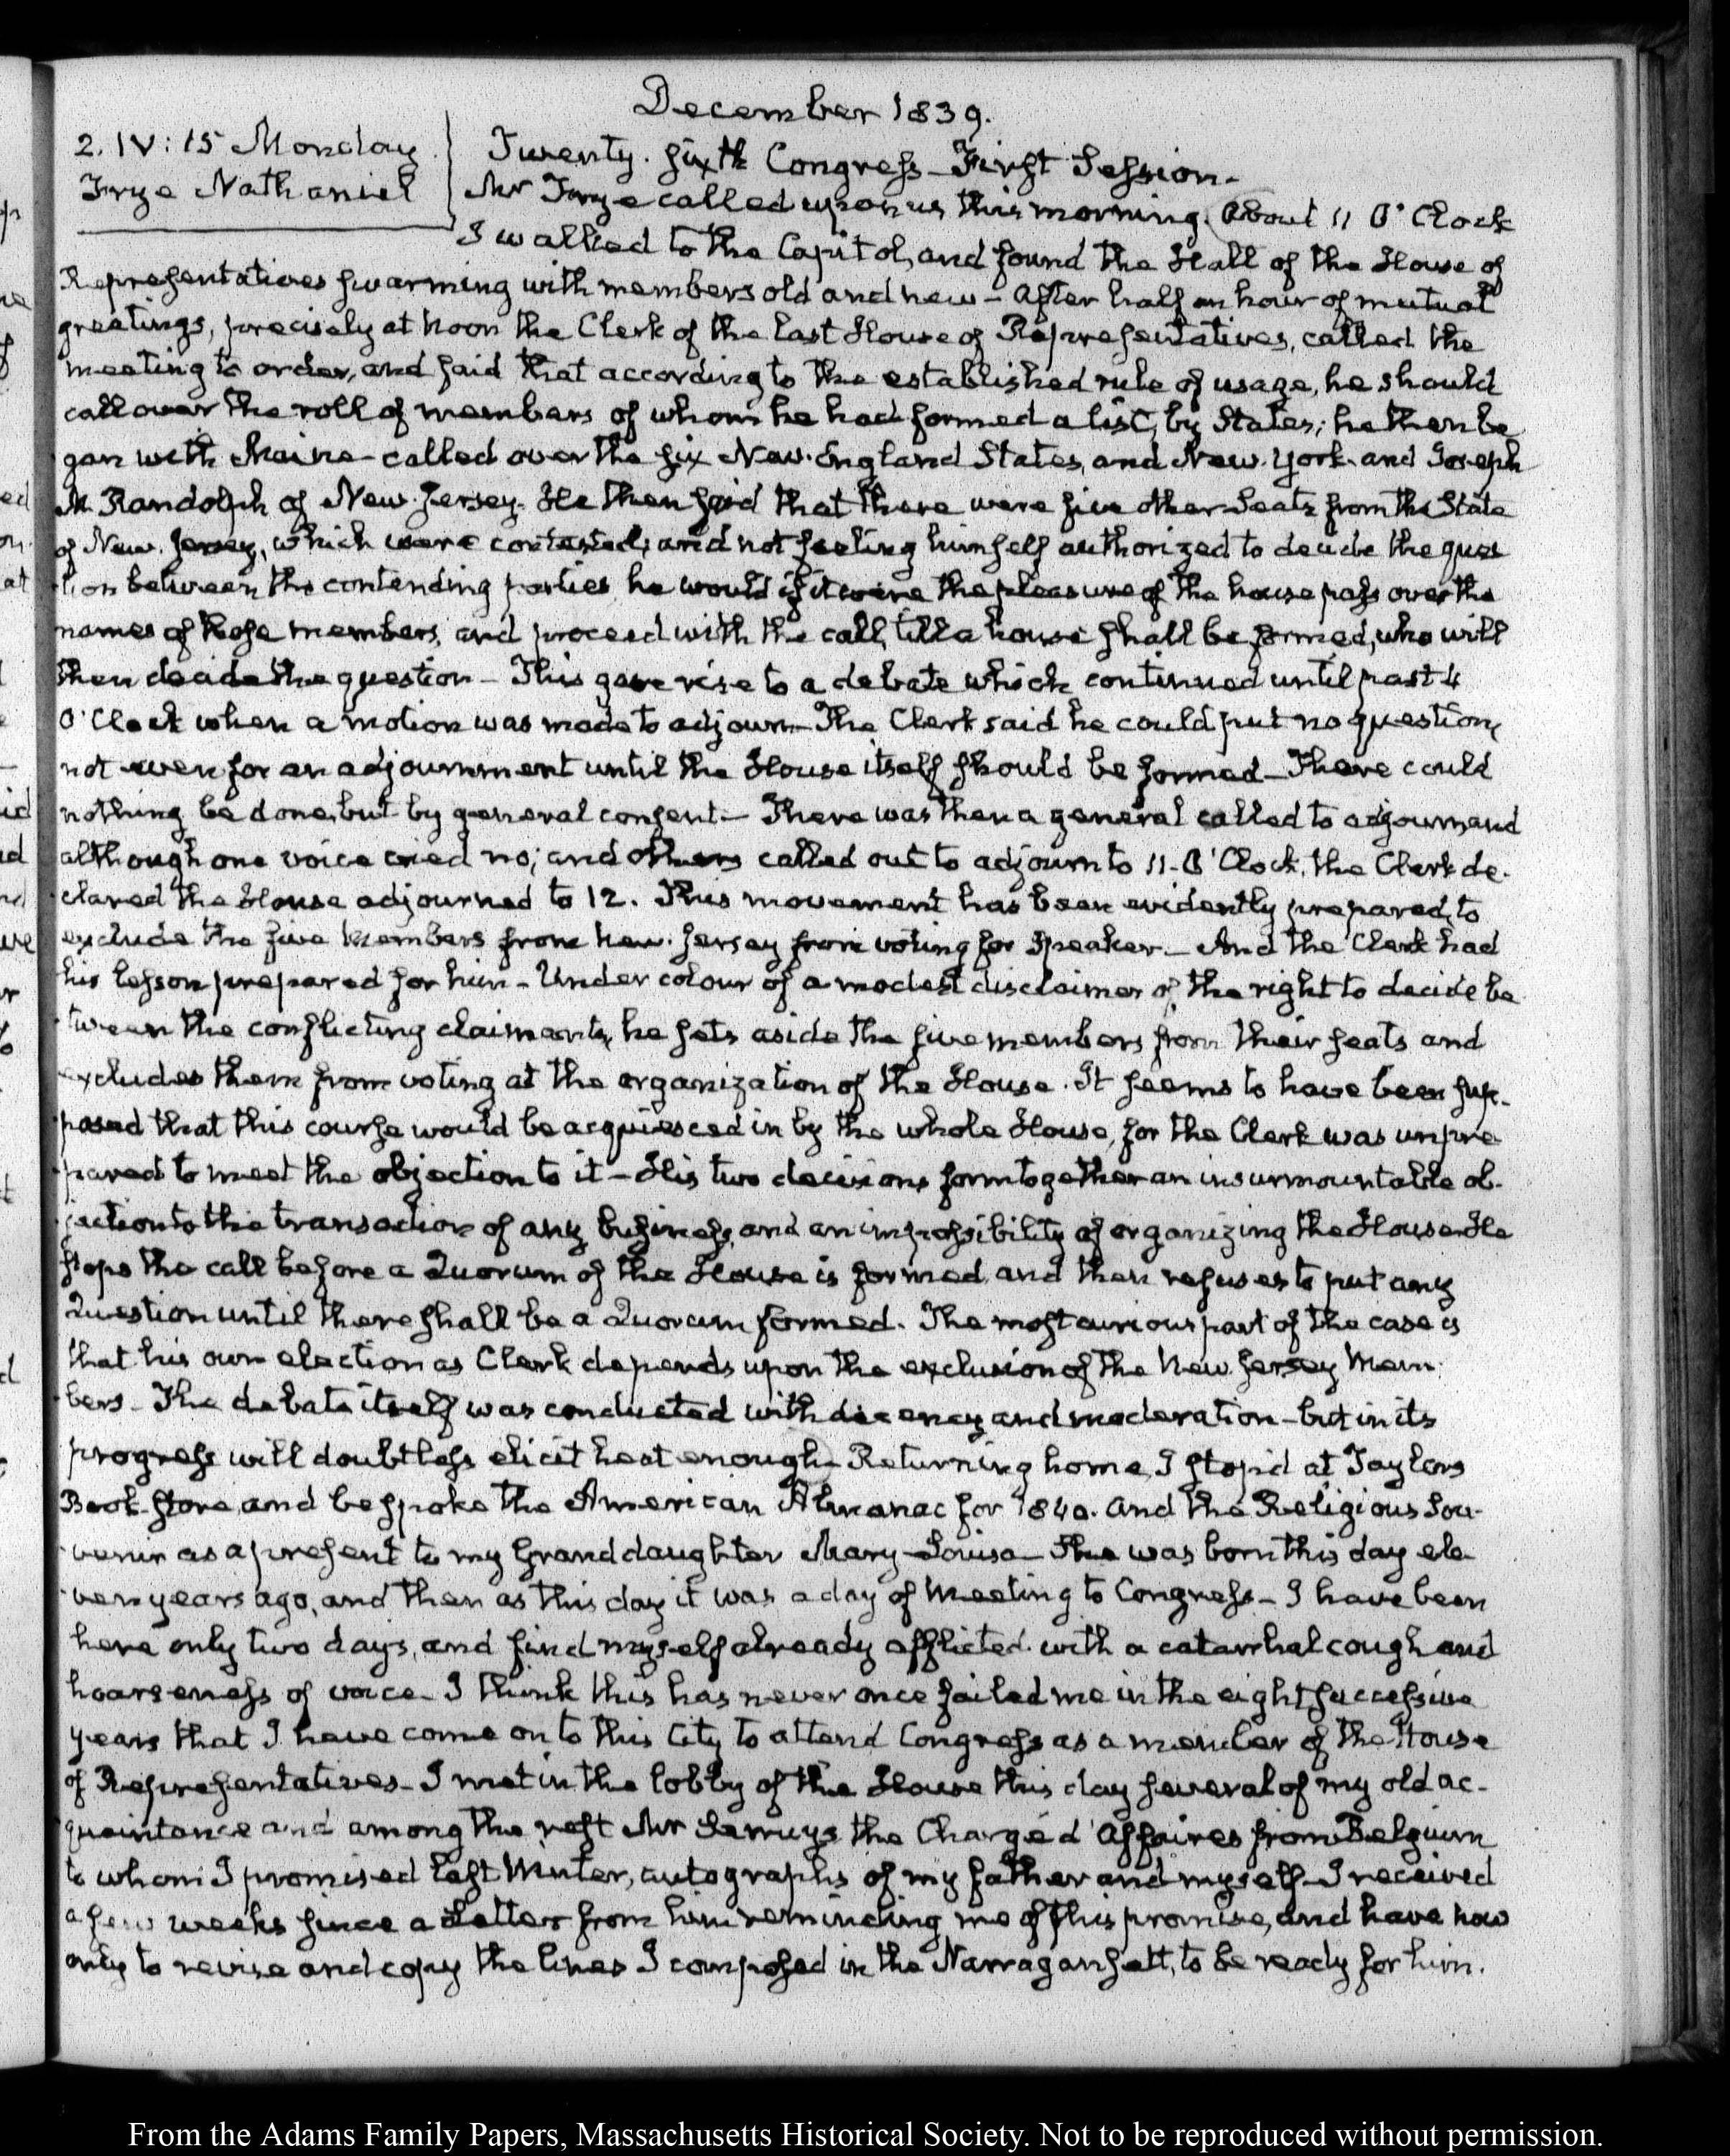 December 1839.
2. IV: 15 Monday
Frye Nathaniel
Twenty. sixth Congress - First Session.
Mr Frye called upon us this morning. About 11 O'Clock
I walked to the Capitol, and found the Hall of the House of
Representatives swarming with members old and new - After half an hour of mutual
greetings, precisely at Noon the Clerk of the last House of Representatives, called the
meeting to order, and said that according to the established rule of usage, he should
call over the roll of members of whom he had formed a list, by States; he then be
gan with Maine - called over the six New-England States, and New-York and Joseph
M. Randolph of New-Jersey. He then said that there were five other Seats from the State
of New-Jersey, which were contested; and not feeling himself authorized to decide the ques
tion between the contending parties, he would if it were the pleasure of the house pass over the
names of those members, and proceed with the call, till a house shall be formed, who will
then decide the question - This gave rise to a debate which continued until past 4
O'Clock when a motion was made to adjourn - The Clerk said he could put no question,
not even for an adjournment until the House itself should be formed - There could
nothing be done, but by general consent. - There was then a general called to adjourn, and
although one voice cried no; and others called out to adjourn to 11. O'Clock, the Clerk de-
clared the House adjourned to 12. This movement has been evidently prepared, to
exclude the five Members from New-Jersey from voting for Speaker - And the Clerk had
his lesson prepared for him - Under colour of a modest disclaimer of the right to decide be
tween the conflicting claimants, he sets aside the five members from their seats and
excludes them from voting at the organization of the House. It seems to have been sup-
posed that this course would be acquiesced in by the whole House, for the Clerk was unpre
pared to meet the objection to it - His two decisions form together an insurmountable ob-
jection to the transaction of any business, and an impossibility of organizing the House - He
stops the call before a Quorum of the House is formed, and then refuses to put any
Question until there shall be a Quorum formed. The most curious part of the case is
that his own election as Clerk depends upon the exclusion of the New-Jersey Mem-
bers - The debate itself was conducted with decency and moderation - but in its
progress will doubtless elicit heat enough - Returning home, I stop'd at Taylors
Book-store, and bespoke the American Almanac for 1840. and the Religious Sou-
venir as a present to my Granddaughter Mary-Louisa - She was born this day ele-
ven years ago, and then as this day it was a day of Meeting to Congress - I have been
here only two days, and find myself already afflicted with a catarrhal cough and
hoarseness of voice - I think this has never once failed me in the eight successive
years that I have come on to this City to attend Congress as a member of the House
of Representatives - I met in the lobby of the House this day several of my old ac-
quaintance and among the rest Mr Serruys the Chargé d'Affaires from Belgium
to whom I promised last Winter, autographs of my father and myself - I received
a few weeks since a Letter from him reminding me of this promise, and have now
only to revise and copy the lines I composed in the Narragansett, to be ready for him.
From the Adams Family Papers, Massachusetts Historical Society. Not to be reproduced without permission.